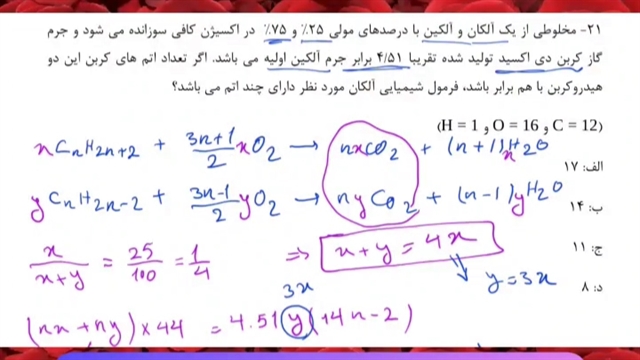 ۲۱- مخلوطی از یک آلکان و آلکین با درصدهای مولی ۲۵٪ و ۷۵٪ در اکسیژن کافی سوزانده می شود و جرم
گاز کربن دی اکسید تولید شده تقریبا ۴/۵۱ برابر جرم آلکین اولیه می باشد. اگر تعداد اتم های کربن این دو
هیدروکربن با هم برابر باشد، فرمول شیمیایی آلکان مورد نظر دارای چند اتم می باشد؟
(H = 1 و O = 16 و C = 12)
xCnH2n+2 + 3n+1/2 xO2 → nxCO2 + (n+1)xH2O
الف: ۱۷
yCnH2n-2 + 3n-1/2 yO2 → nyCO2 + (n-1)yH2O
ب: ۱۴
x/x+y = 25/100 = 1/4 ⇒ x+y = 4x
ج: ۱۱
y = 3x
د: ۸
3x
(nx + ny) × 44 = 4.51 y (14n-2)